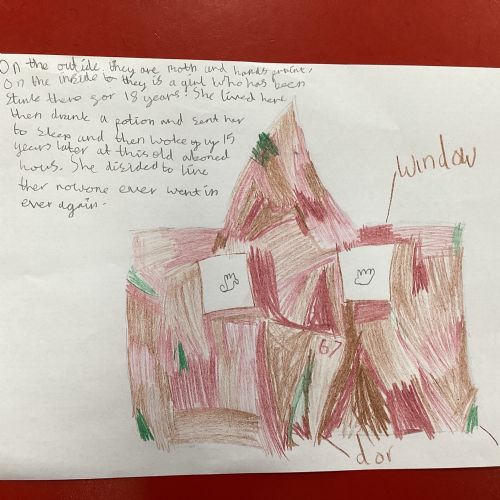 On the outside they are moth and hands print,
On the inside to they is a girl who has been
Stuke there for 18 years. She lived here
then drank a potion and sent her
to sleep and then woke up 15
years later at this old
hous. She disided to live
ther nowone ever went in
ever again.
window
67
dor